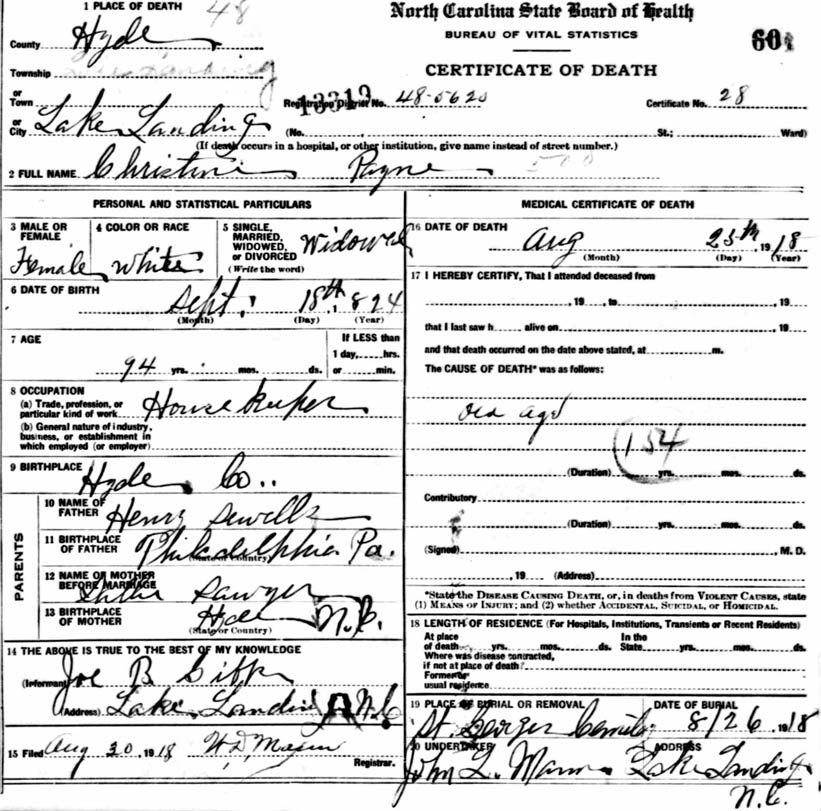 1 PLACE OF DEATH 48
North Carolina State Board of Health
BUREAU OF VITAL STATISTICS
CERTIFICATE OF DEATH
County Hyde
Township Lake Landing
or
Town
or
City Lake Landing
13319
Registration District No. 48-5620
Certificate No. 28
(No. St.; Ward)
(If death occurs in a hospital, or other institution, give name instead of street number.)
2 FULL NAME Christine Payne
PERSONAL AND STATISTICAL PARTICULARS
3 MALE OR FEMALE
Female
4 COLOR OR RACE
White
5 SINGLE, MARRIED, WIDOWED, OR DIVORCED
(Write the word)
Widowed
6 DATE OF BIRTH
Sept. 18th, 1824
(Month) (Day) (Year)
7 AGE
94 yrs. mos. ds.
If LESS than
1 day, hrs.
or min.
8 OCCUPATION
(a) Trade, profession, or
particular kind of work Housekeeper
(b) General nature of industry,
business, or establishment in
which employed (or employer)
9 BIRTHPLACE Hyde Co..
PARENTS
10 NAME OF
FATHER Henry
11 BIRTHPLACE
OF FATHER Philadelphia Pa.
(State or Country)
12 NAME OF MOTHER
BEFORE MARRIAGE Sawyer
13 BIRTHPLACE
OF MOTHER Hyde N.C.
(State or Country)
14 THE ABOVE IS TRUE TO THE BEST OF MY KNOWLEDGE
(Informant) Joe B
(Address) Lake Landing N.C.
15 Filed Aug 30, 1918
Registrar.
MEDICAL CERTIFICATE OF DEATH
16 DATE OF DEATH
Aug 25th, 1918
(Month) (Day) (Year)
17 I HEREBY CERTIFY, That I attended deceased from
, 19 , to , 19
that I last saw h alive on , 19
and that death occurred on the date above stated, at m.
The CAUSE OF DEATH* was as follows:
old age
154
(Duration) yrs. mos. ds.
Contributory
(Duration) yrs. mos. ds.
(Signed) M. D.
, 19 (Address)
*State the DISEASE CAUSING DEATH, or, in deaths from VIOLENT CAUSES, state
(1) MEANS OF INJURY; and (2) whether ACCIDENTAL, SUICIDAL, OR HOMICIDAL.
18 LENGTH OF RESIDENCE (For Hospitals, Institutions, Transients or Recent Residents)
At place
of death yrs. mos. ds.
In the
State yrs. mos. ds.
Where was disease contracted,
if not at place of death?
Former or
usual residence
19 PLACE OF BURIAL OR REMOVAL
St. Cemetery
DATE OF BURIAL
8/26, 1918
20 UNDERTAKER
John L. Mann
ADDRESS
Lake Landing
N.C.